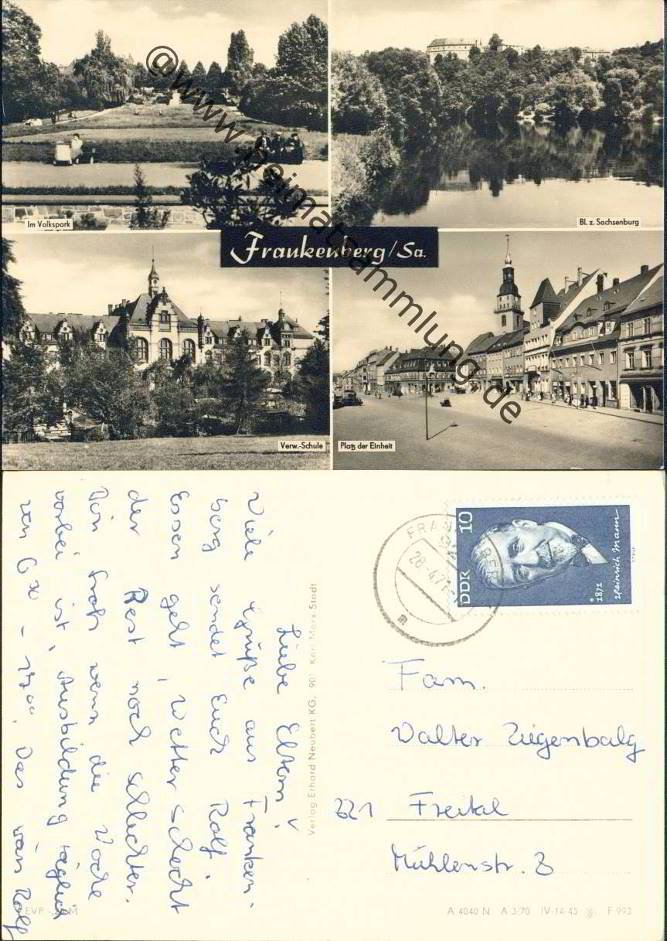 Im Volkspark
Bl. z. Sachsenburg
Frankenberg/Sa.
Verw.-Schule
Platz der Einheit
@www.heimatsammlung.de
Liebe Eltern!
Viele Grüße aus Franken-
berg sendet Euch Rolf.
Essen geht, Wetter schlecht
der Rest noch schlechter.
Bin froh wenn die Woche
vorbei ist, Ausbildung täglich
von 6 00 - 17 00. Das wärs Rolf
Verlag Erhard Neubert KG, 901 Karl-Marx-Stadt
DDR 10
Heinrich Mann
* 1871
28.4.71
Fam.
Walter Ziegenbalg
221 Freital
Mühlenstr. 8
EVP
A 4040 N A 3/70 IV-14-45 F 993